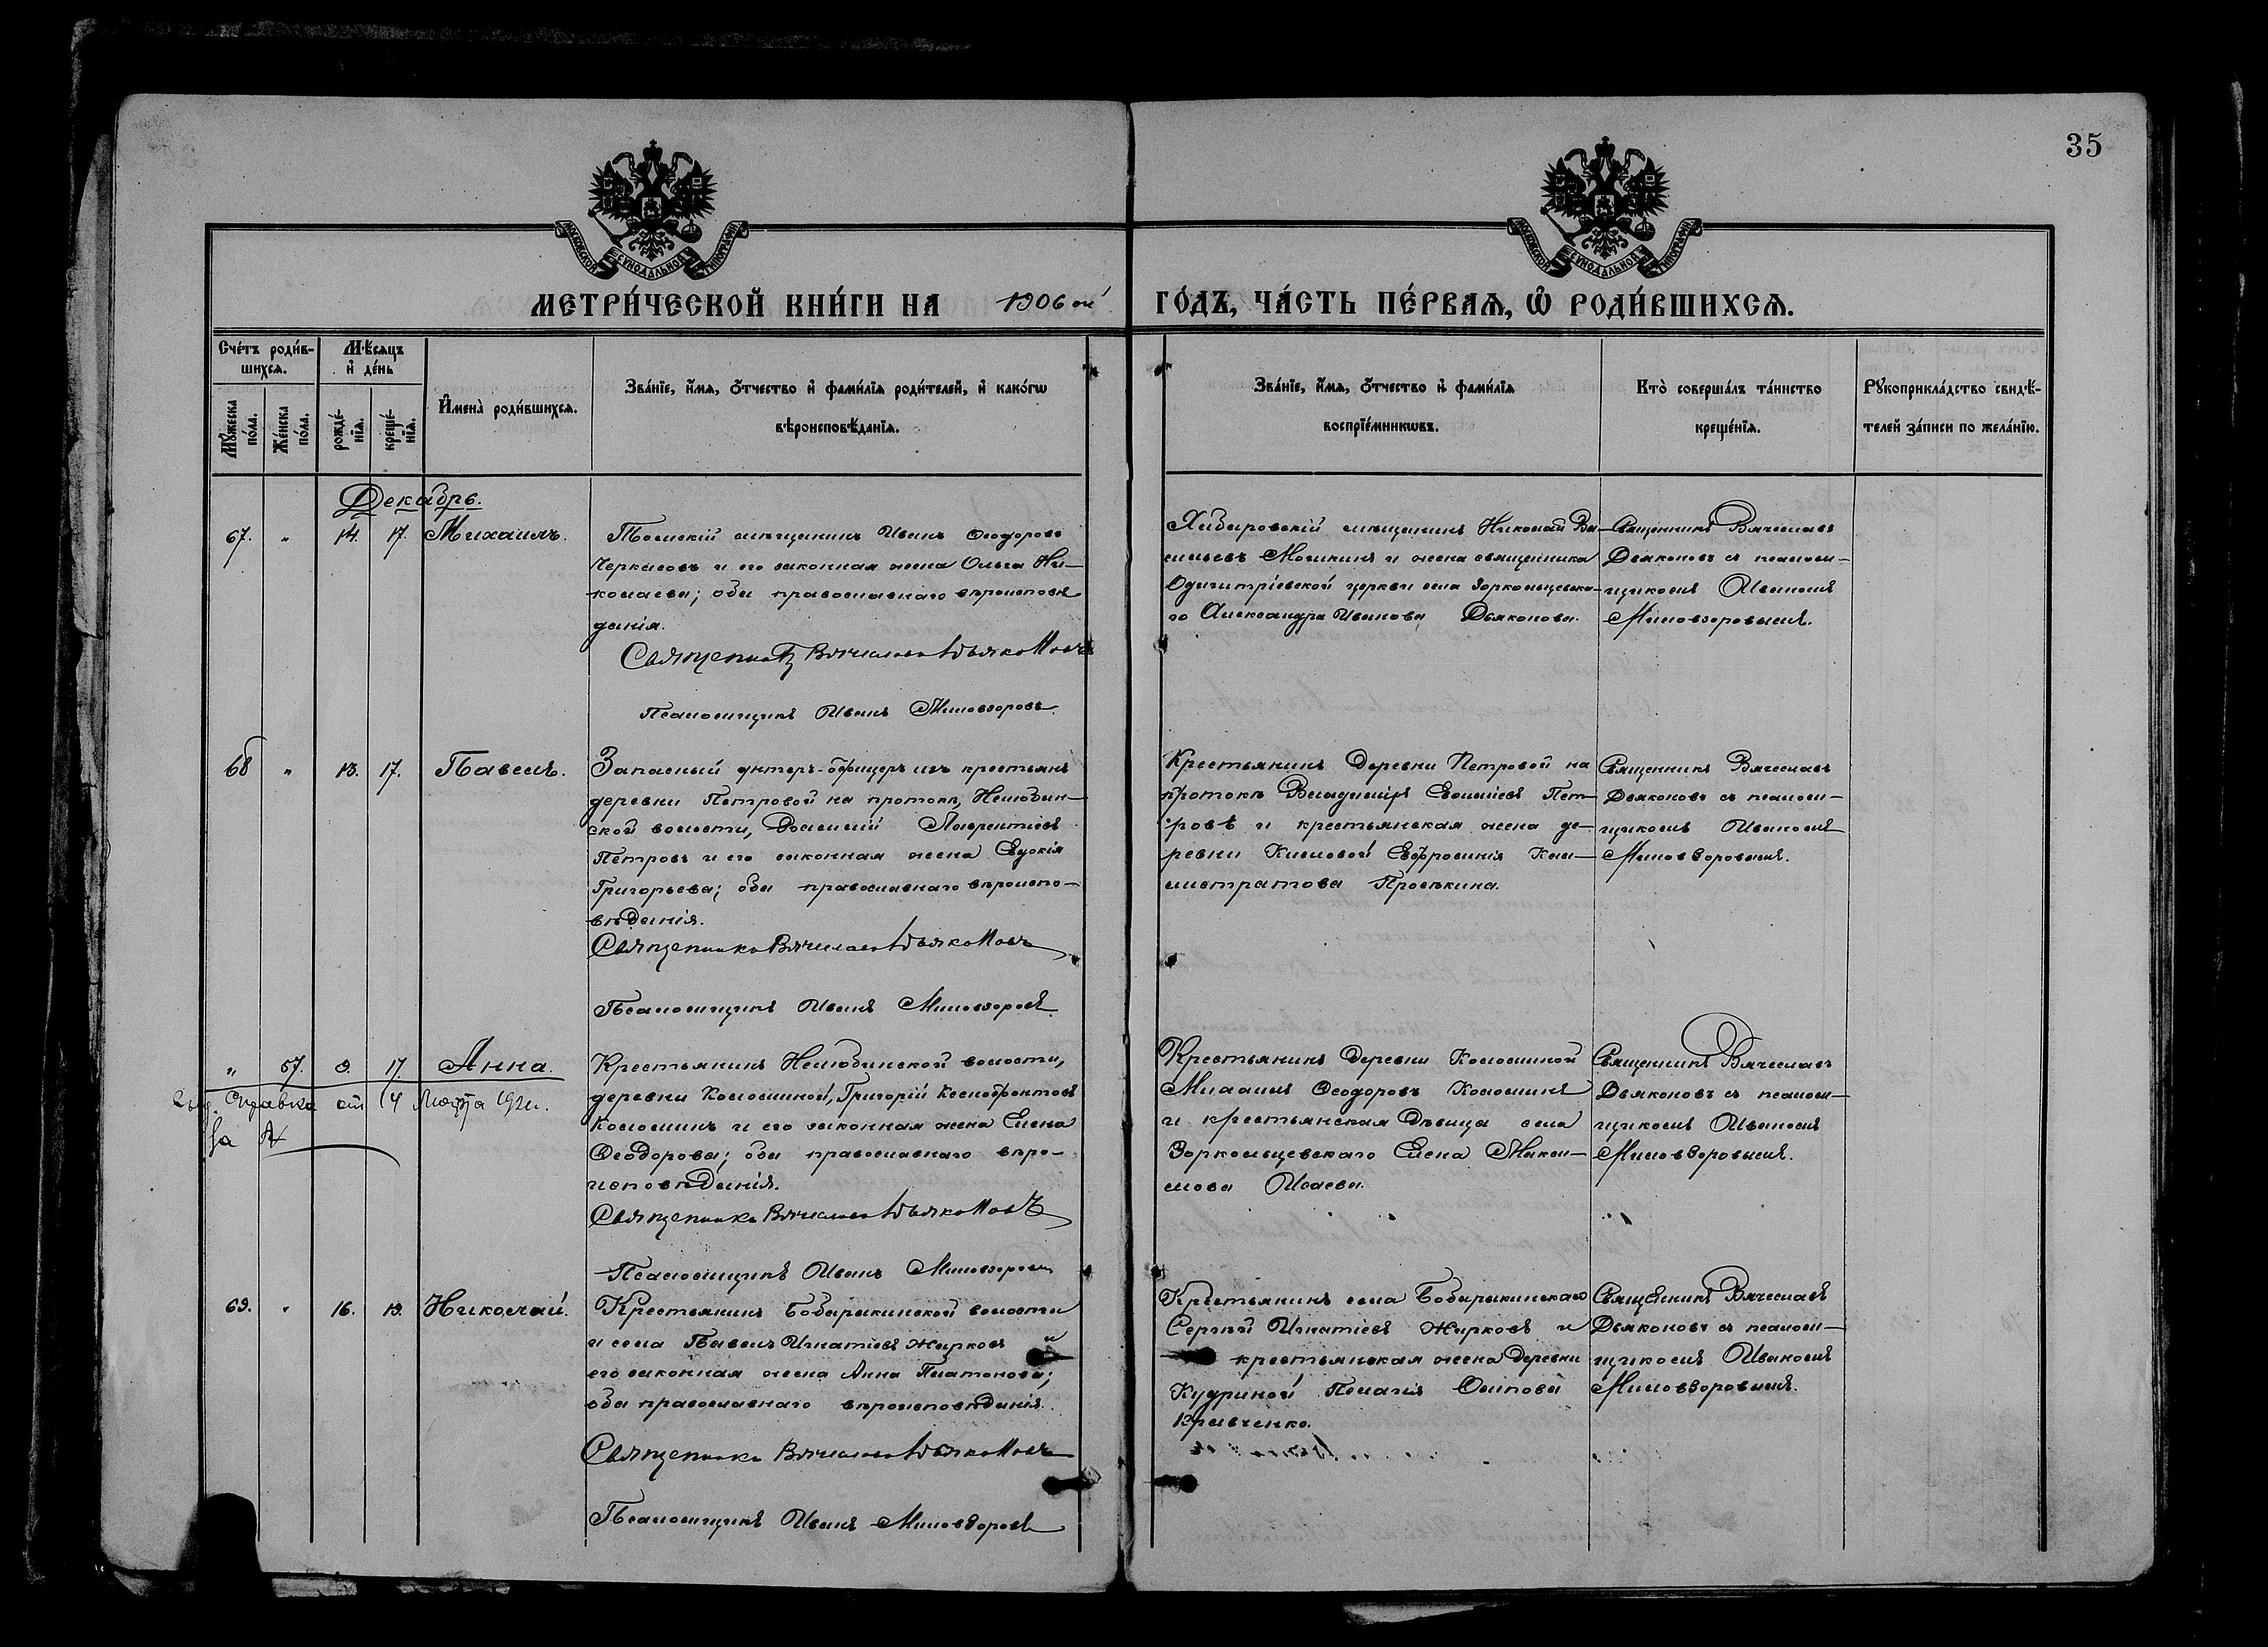 35
МОСКОВСКОЙ СѴНОДАЛЬНОЙ ТИПОГРАФІИ
МОСКОВСКОЙ СѴНОДАЛЬНОЙ ТИПОГРАФІИ
МЕТРИ́ЧЕСКОЙ КНИ́ГИ НА 1906 ой ГО́ДЪ, ЧА́СТЬ ПЕ́РВАѦ, Ѡ҆ РОДИ́ВШИХСѦ.
Сче́тъ роди́в-
шихсѧ.
Мѣ́сѧцъ
и҆ де́нь
Мꙋ́жеска по́ла.
Же́нска по́ла.
рожде́-
нїѧ.
креще́-
нїѧ.
И҆мена̀ роди́вшихсѧ.
Зва́нїе, и҆́мѧ, ѻ҆́тчество и҆ фами́лїѧ роди́телей, и҆ како́гѡ
вѣроисповѣ́данїѧ.
Зва́нїе, и҆́мѧ, ѻ҆́тчество и҆ фами́лїѧ
воспрїе́мникѡвъ.
Кто̀ соверша́лъ та́инство
креще́нїѧ.
Рꙋкоприкла́дство свидѣ́-
телей за́писи по жела́нїю.
Декабрь.
67. " 14. 17. Михаилъ.
Томскій мѣщанинъ Иванъ Ѳеодоровъ
Черкасовъ и его законная жена Ольга Ни-
колаева; оба православнаго вѣроисповѣ
данія.
Священникъ Вячеславъ Дьяконовъ
Псаломщикъ Иванъ Миловзоровъ.
мѣщанинъ Николай Ва-
сильевъ Мошкинъ и жена священника
Одигитріевской церкви села Зоркольцевска-
го Александра Иванова Дьяконова.
Священникъ Вячеславъ
Дьяконовъ съ псалом-
щикомъ Иваномъ
Миловзоровымъ.
68 " 13. 17. Павелъ.
Запасный унтеръ-офицеръ изъ крестьянъ
деревни Петровой на протокѣ, Нелюбин-
ской волости, Лаврентіевъ
Петровъ и его законная жена Евдокія
Григорьева; оба православнаго вѣроиспо-
вѣданія.
Священникъ Вячеславъ Дьяконовъ
Псаломщикъ Иванъ Миловзоровъ.
Крестьянинъ деревни Петровой на
протокѣ Владиміръ Пет-
ровъ и крестьянская жена де-
ревни Кисловой Евфросинія Кали-
стратова Просѣкина.
Священникъ Вячеславъ
Дьяконовъ съ псалом-
щикомъ Иваномъ
Миловзоровымъ.
" 57. 9. 17. Анна.
Справка от 14 Марта
За №
Крестьянинъ Нелюбинской волости,
деревни Коломиной, Григорій Ксенофонтовъ
Коломинъ и его законная жена Елена
Ѳеодорова; оба православнаго вѣро-
исповѣданія.
Священникъ Вячеславъ Дьяконовъ
Псаломщикъ Иванъ Миловзоровъ
Крестьянинъ деревни Коломиной
Михаилъ Ѳеодоровъ Коломинъ
и крестьянская дѣвица села
Зоркольцевскаго Елена
Исаева.
Священникъ Вячеславъ
Дьяконовъ съ псалом-
щикомъ Иваномъ
Миловзоровымъ.
69. " 16. 19. Николай.
Крестьянинъ Бобарыкинской волости
и села Павелъ Игнатіевъ Жирковъ и
его законная жена Анна Платонова;
оба православнаго вѣроисповѣданія.
Священникъ Вячеславъ Дьяконовъ
Псаломщикъ Иванъ Миловзоровъ
Крестьянинъ села Бобарыкинскаго
Сергѣй Игнатіевъ Жирковъ и
крестьянская жена деревни
Кудриной Пелагія Осипова
Кравченко.
Священникъ Вячеславъ
Дьяконовъ съ псалом-
щикомъ Иваномъ
Миловзоровымъ.